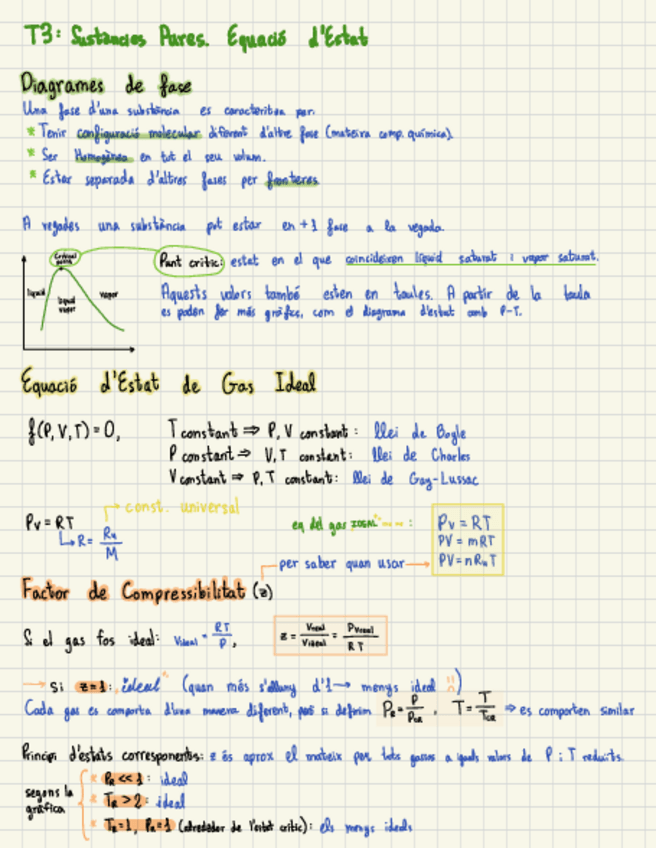 T3: Sustàncies Pures. Equació d'Estat
Diagrames de fase
Una fase d'una substància es caracteritza per:
* Tenir configuració molecular diferent d'altre fase (mateixa comp. química).
* Ser Homogènea en tot el seu volum.
* Estar separada d'altres fases per fronteres
A vegades una substància pot estar en +1 fase a la vegada.
Punt crític: estat en el que coincideixen líquid saturat i vapor saturat.
líquid
líquid vapor
vapor
Aquests valors també esten en taules. A partir de la taula
es poden fer més gràfics, com el diagrama d'estat amb P-T.
Equació d'Estat de Gas Ideal
f(P,V,T)=0,
T constant ⇒ P, V constant: llei de Bogle
P constant ⇒ V, T constant: llei de Charles
V constant ⇒ P, T constant: llei de Gay-Lussac
const. universal
Pv = RT
R = Ru/M
eq del gas IDEAL
:
Pv = RT
PV = mRT
PV = nRuT
per saber quan usar
Factor de Compressibilitat (z)
Si el gas fos ideal: Videal = RT/P,
z = Vreal/Videal = PVreal/RT
→ Si z=1: ideal (quan més s'allunya d'1 → menys ideal )
Cada gas es comporta d'una manera diferent, però si definim PR = P/PCR, T = T/TCR ⇒ es comporten similar
Principi d'estats corresponents: z és aprox el mateix per tots gasos a iguals valors de P i T reduïts.
segons la gràfica
* PR << 1: ideal
* TR > 2: ideal
* TR=1, PR=1 (alrededor de l'estat crític): els menys ideals